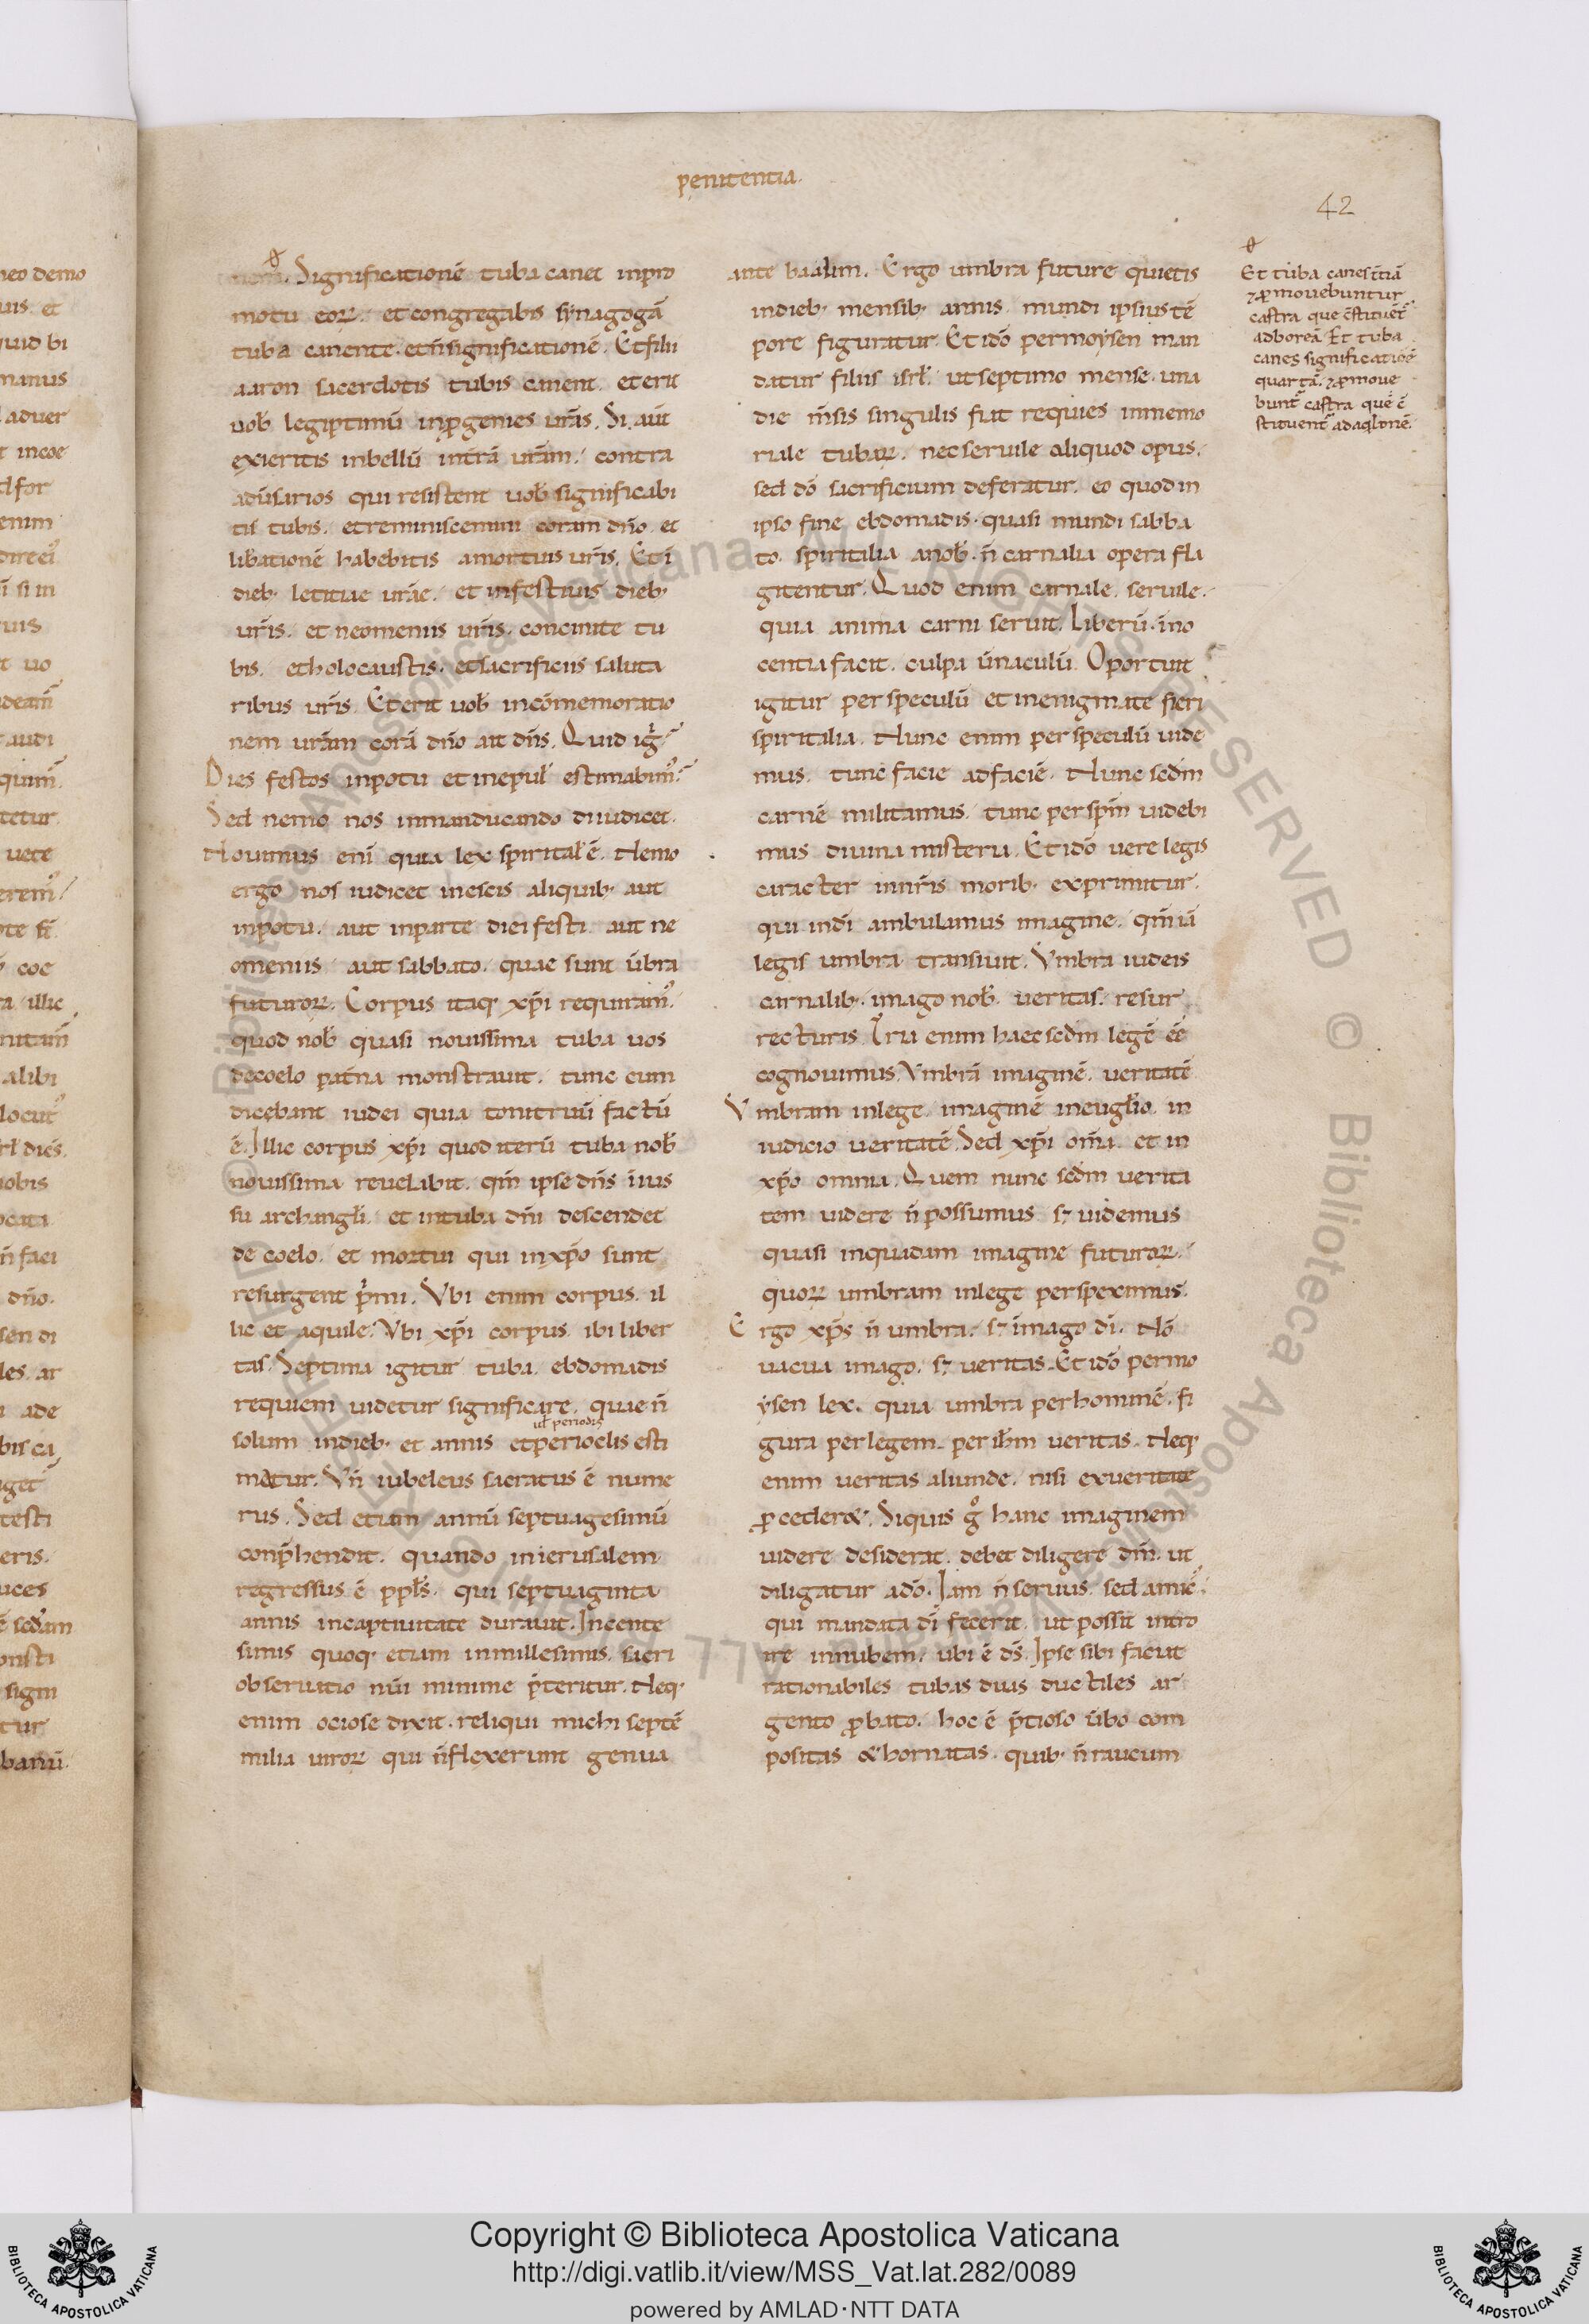 penitentia.
42
Significationē tuba canet inpro
motu eoꝝ. et congregabis synagogā
tuba canente. et n̄ significationē. Et filii
aaron sacerdotis tubis canent. et erit
uob̄ legiptimū inꝓgenies ur̄as. Si aūt
exieritis inbellū intrā ur̄am. contra
adūsarios qui resistent uob̄ significabi
tis tubis. et reminiscemini coram dn̄o. et
lib̄ationē habebitis amortuis ur̄is. Et ī
dieb· letitiae ur̄ae. et infestiuis dieb·
ur̄is. et neomeniis ur̄is. concinite tu
bis. et holocaustis. et sacrificiis saluta
ribus ur̄is. Et erit uob̄ incōmemoratio
nem ur̄am corā dn̄o ait dn̄s. Quid igr̄
Dies festos inpotu et inepul̄ estimabim᷒.
Sed nemo nos inmanducando diiudicet.
Nouimus eni̅ quia lex spiritalˀ ē. Nemo
ergo nos iudicet inescis aliquib· aut
inpotu. aut inparte diei festi. aut ne
omeniis aut sabbato. quae sunt ūbra
futuroꝝ. Corpus itaq· xp̄i requiram᷒.
quod nob̄ quasi nouissima tuba uos
decoelo pat̄na monstrauit. tunc cum
dicebant iudei quia tonitruū factū
ē. Illic corpus xp̄i quod iterū tuba nob̄
nouissima reuelabit. qm̄ ipse dn̄s īius
su archangl̄i. et intuba dn̄i descendet
de coelo. et mortui qui inxp̄o sunt
resurgent p̄mi. Vbi enim corpus. il
lic et aquile. Vbi xp̄i corpus. ibi liber
tas. Septima igitur tuba. ebdomadis
requiem uidetur significare. quae n̄
ut̄ periodis
solum indieb· et annis et perioclis esti
metur. Vn̄ iubeleus sacratus ē nume
rus. Sed etiam annū septuagesimū
conp̄hendit. quando inierusalem
regressus ē ppl̄s. qui septuaginta
annis incaptiuitate durauit. Incente
simis quoq· etiam inmillesimis. sacri
obseruatio nūi minime p̄teritur. Neq·
enim ociose dixit. reliqui michi septē
milia uiroꝝ qui n̄ flexerunt genua
ante baalim. Ergo umbra future quietis
indieb· mensib· annis. mundi ipsius tē
pore figuratur. Et idō permoysen man
datur filiis isrl̄. ut septimo mense. una
die m̄sis singulis fiat requies inmemo
riale tubaꝝ. nec seruile aliquod opus.
sed dō sacrificium deferatur. eo quod in
ipso fine ebdomadis. quasi mundi sabba
to. spiritalia anob̄. n̄ carnalia opera fla
gitentur. Quod enim carnale. seruile.
quia anima carni seruit. Liberū. īno
centia facit. culpa ūnaculū. Oportuit
igitur per speculū et inenigmate fieri
spiritalia. Nunc enim per speculū uide
mus. tunc facie adfaciē. Nunc sedm̄
carnē militamus. tunc per spm̄ uidebi
mus diuina misteria. Et idō uere legis
caracter innr̄is morib· exprimitur.
qui indī ambulamus imagine. qm̄ iā
legis umbra transiuit. Vmbra iudeis
carnalib·. imago nob̄. ueritas. resur
recturis. Tria enim haec sedm̄ legē ēē
cognouimus. Vmbrā imaginē. ueritatē
Vmbram inlege. imaginē ineuglˀio. in
iudicio ueritatē. Sed xp̄i om̄ia. et in
xp̄o omnia. Quem nunc sedm̄ uerita
tem uidere n̄ possumus. s; uidemus
quasi inquadam imagine futuroꝝ.
quoꝝ umbram inlege perspeximus.
Ergo xp̄s n̄ umbra. s; imago dī. Nō
uacua imago. s; ueritas. Et idō permo
ysen lex. quia umbra per hominē. fi
gura per legem. per ihm̄ ueritas. Neq·
enim ueritas aliunde. nisi exueritate
ꝓcederet. Siquis gͦ hanc imaginem
uidere desiderat. debet diligere dm̄. ut
diligatur adō. Iam n̄ seruus. sed amic᷒.
qui mandata dī fecerit. ut possit intro
ire innubem. ubi ē ds̄. Ipse sibi faciat
rationabiles tubas duas ductiles ar
gento ꝓbato. hoc ē p̄tioso ūbo com
positas & hornatas. quib· n̄ raucum
Et tuba canes t̄tiā
⁊ ꝓmouebuntur
castra que c̄stituēt̄
adboreā. Et tuba
canes significatiōē
quartā. ⁊ ꝓmoue
bunt̄ castra que c̄
stituent̄ adaqlonē.
Copyright © Biblioteca Apostolica Vaticana
http://digi.vatlib.it/view/MSS_Vat.lat.282/0089
powered by AMLAD·NTT DATA
BIBLIOTECA APOSTOLICA VATICANA
BIBLIOTECA APOSTOLICA VATICANA